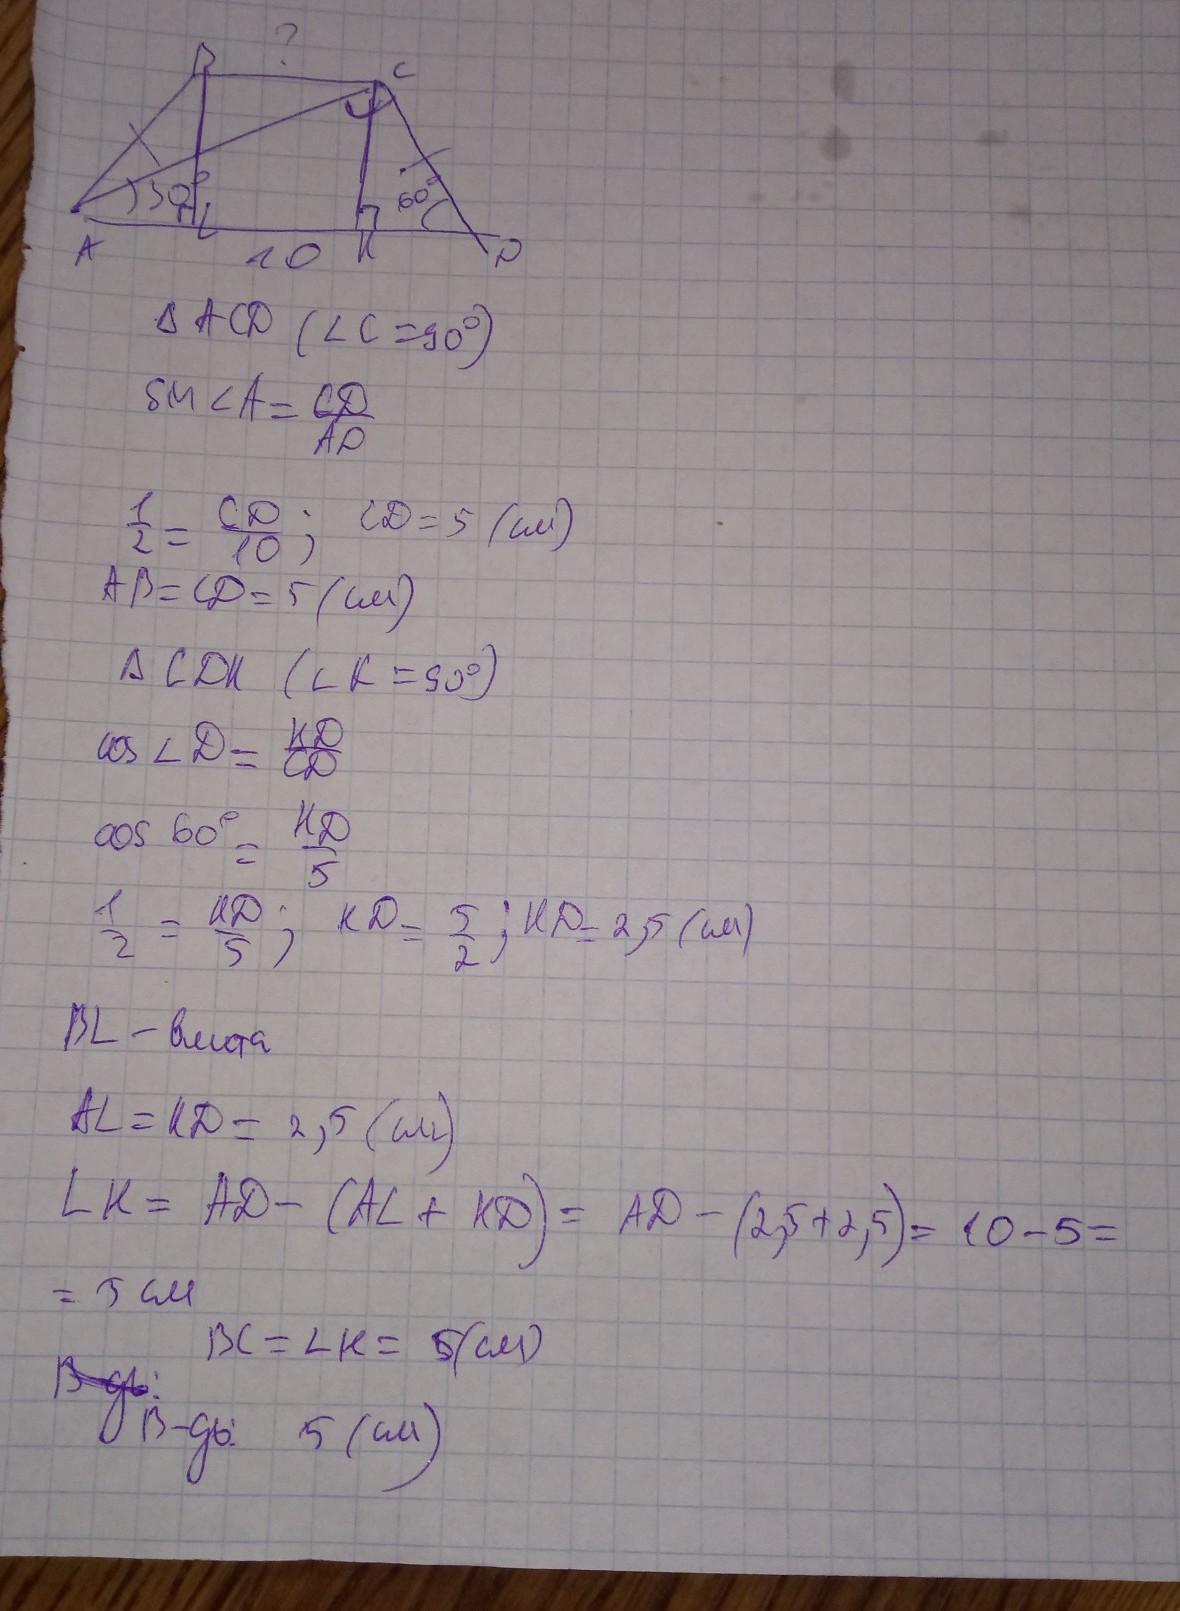 ?
B C
30° 60°
A L 10 K D
Δ ACD (∠C = 90°)
sin ∠A = CD/AD
1/2 = CD/10; CD = 5 (см)
AB = CD = 5 (см)
Δ CDK (∠K = 90°)
cos ∠D = KD/CD
cos 60° = KD/5
1/2 = KD/5; KD = 5/2; KD = 2,5 (см)
BL – висота
AL = KD = 2,5 (см)
LK = AD – (AL + KD) = AD – (2,5 + 2,5) = 10 – 5 =
= 5 см
BC = LK = 5 (см)
В-дь:
В-дь: 5 (см)